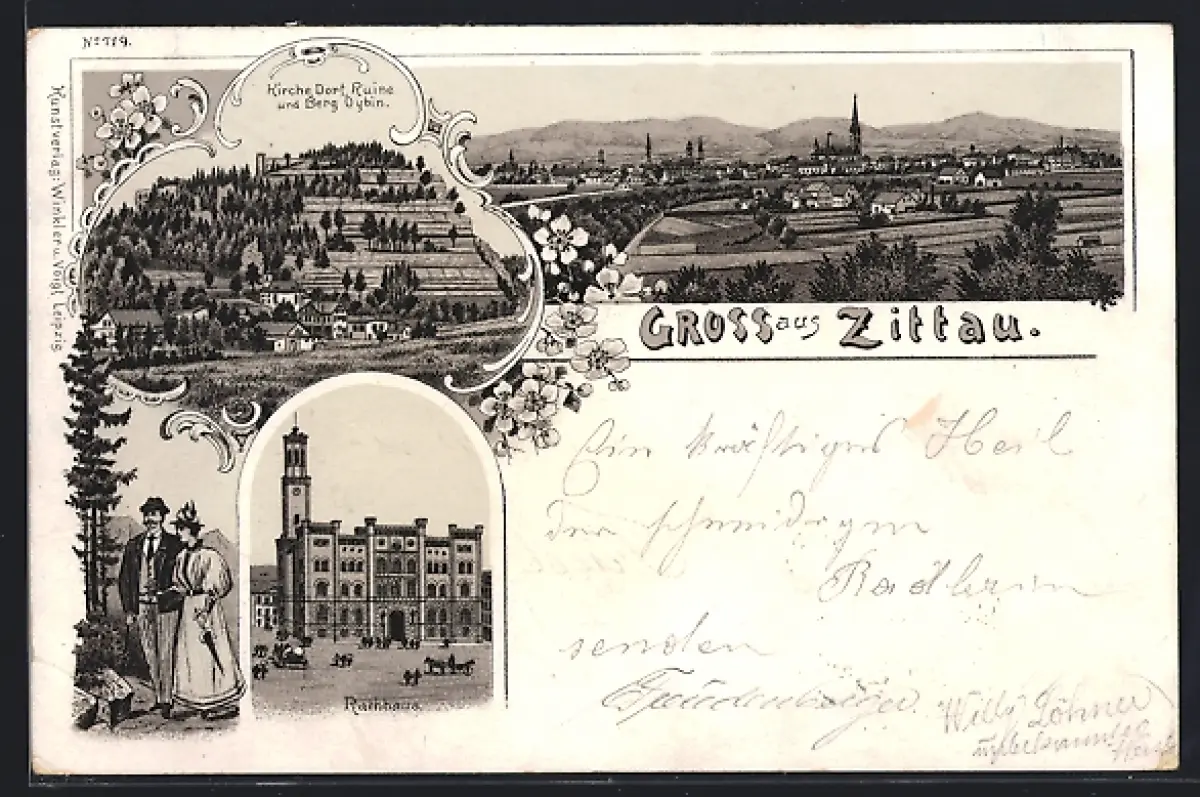 No 789.
Kunstverlag: Winkler u. Voigt, Leipzig
Kirche Dorf, Ruine
und Berg Oybin.
GRUSS aus Zittau.
Rathhaus.
Ein kräftiges Heil
der schneidigen
Radlerin
senden
Willi Löhner